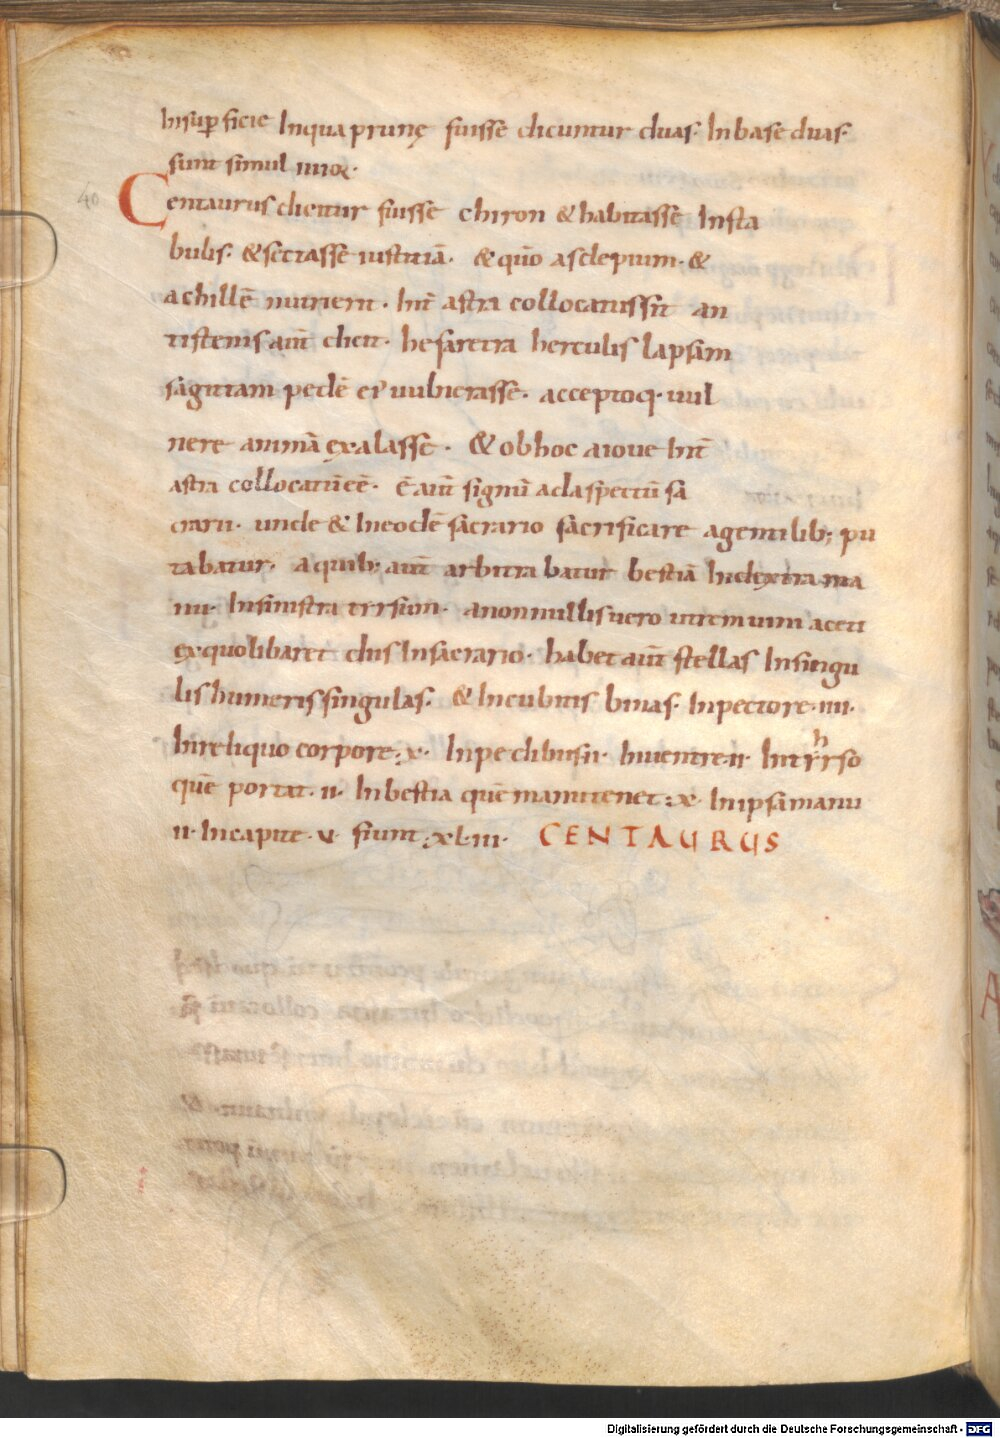 Insuꝑficie Inqua prunę fuisse dicuntur duas· Inbase duas·
sunt simul iiiior·
40
Centaurus dicitur fuisse chiron & habitasse Insta
bulis· & sectasse iustitiā· & quō asclepium· &
achillē nutrierit· Int̄ astra collocatussit̄ an
tistenis aut̄ dicit· he faretra herculis lapsam
sagittam pedē ei' uulnerasse· acceptoq· uul
nere animā exalasse· & obhoc aioue Int̄
astra collocatū ēē· ē aut̄ signū adaspectū sa
cratū· unde & Ineodē sacrario sacrificare agentilib; pu
tabatur· aquib; aut̄ arbitrabatur bestiā Indextra ma
nu· Insinistra tirsum· anonnullis uero utrem uini aceti
exquo libaret diis Insacrario· habet aut̄ stellas Insingu
lis humeris singulas· & Incubitis binas· Inpectore·iiii·
Inreliquo corpore·x· Inpedibus·ii· Inuentre·ii· Intirso
h
quē portat·ii· Inbestia quē manu tenet·x· Inipsa manu
ii· Incapite·v· fiunt·xl·iii· CENTAURUS
Digitalisierung gefördert durch die Deutsche Forschungsgemeinschaft - DFG